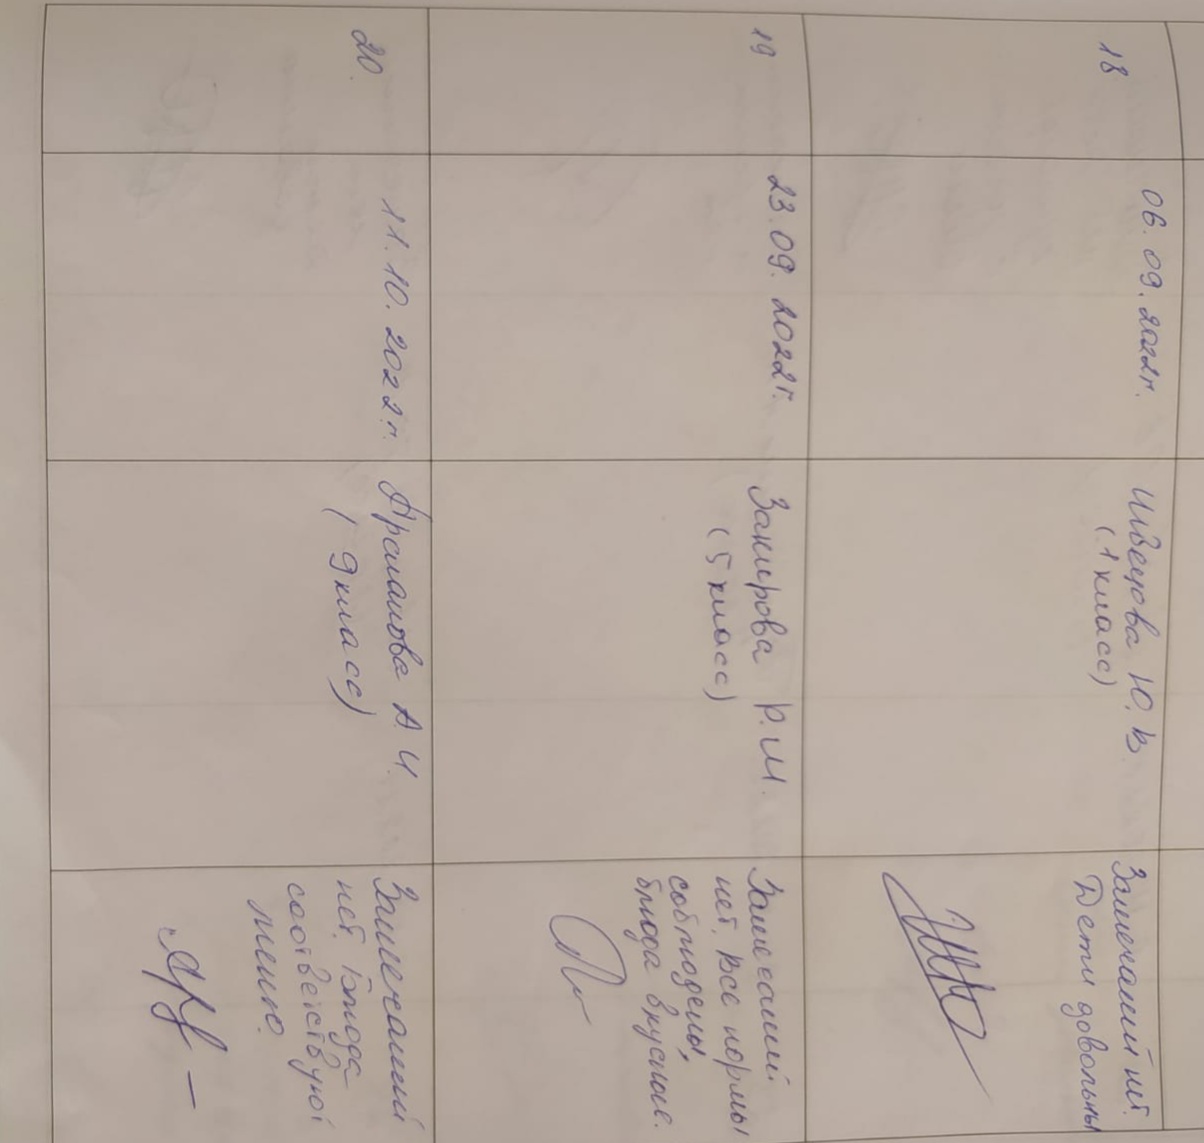 18
06.09.2022г.
Швецова Ю.В
(1 класс)
Замечаний нет.
Дети довольны
19
23.09.2022г.
Закирова Р.М.
(5 класс)
Замечаний
нет. Все нормы
соблюдены,
блюда вкусные.
20.
11.10.2022г.
А.И.
(9 класс)
Замечаний
нет. Блюда
соответствуют
меню.